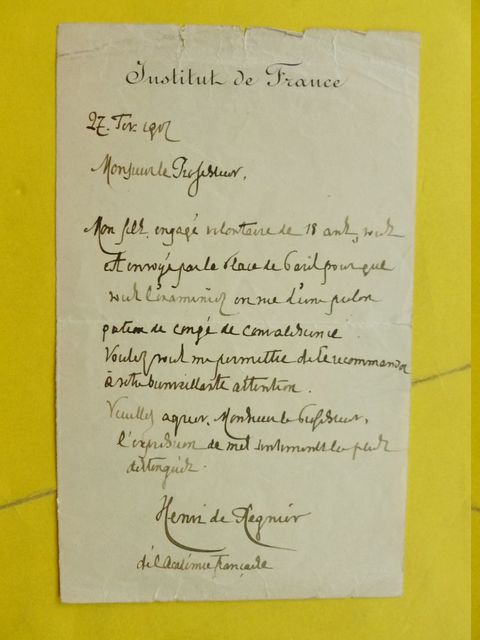 Institut de France
27. Fev. 1917
Monsieur le Professeur,
Mon fils, engagé volontaire de 18 ans, vous
est envoyé par la Place de Paris pour que
vous l'examiniez en vue d'une prolon
gation de congé de convalescence.
Voulez vous me permettre de le recommander
à votre bienveillante attention.
Veuillez agréer, Monsieur le Professeur,
l'expression de mes sentiments les plus
distingués.
Henri de Régnier
de l'Académie française